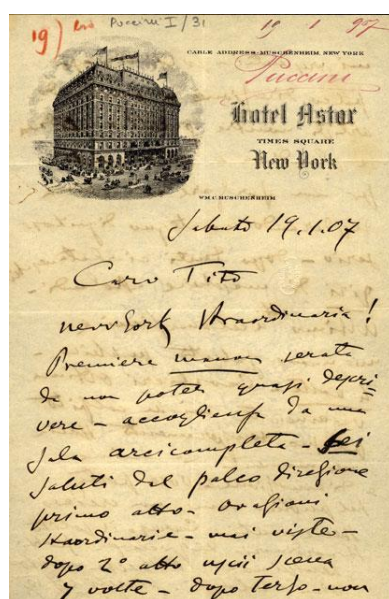 19)
Puccini I/31
19 1 907
CABLE ADDRESS MUSCHENHEIM, NEW YORK
Puccini
Hotel Astor
TIMES SQUARE
New York
WM. C. MUSCHENHEIM
Sabato 19.1.07
Caro Tito
New York straordinaria!
Premiere manon serata
da non poter quasi descri
vere - accoglienza da una
sala arcicompleta - sei
saluti dal palco direzione
primo atto - ovazioni
straordinarie - mai viste -
dopo 2º atto uscii scena
7 volte - dopo terzo - non